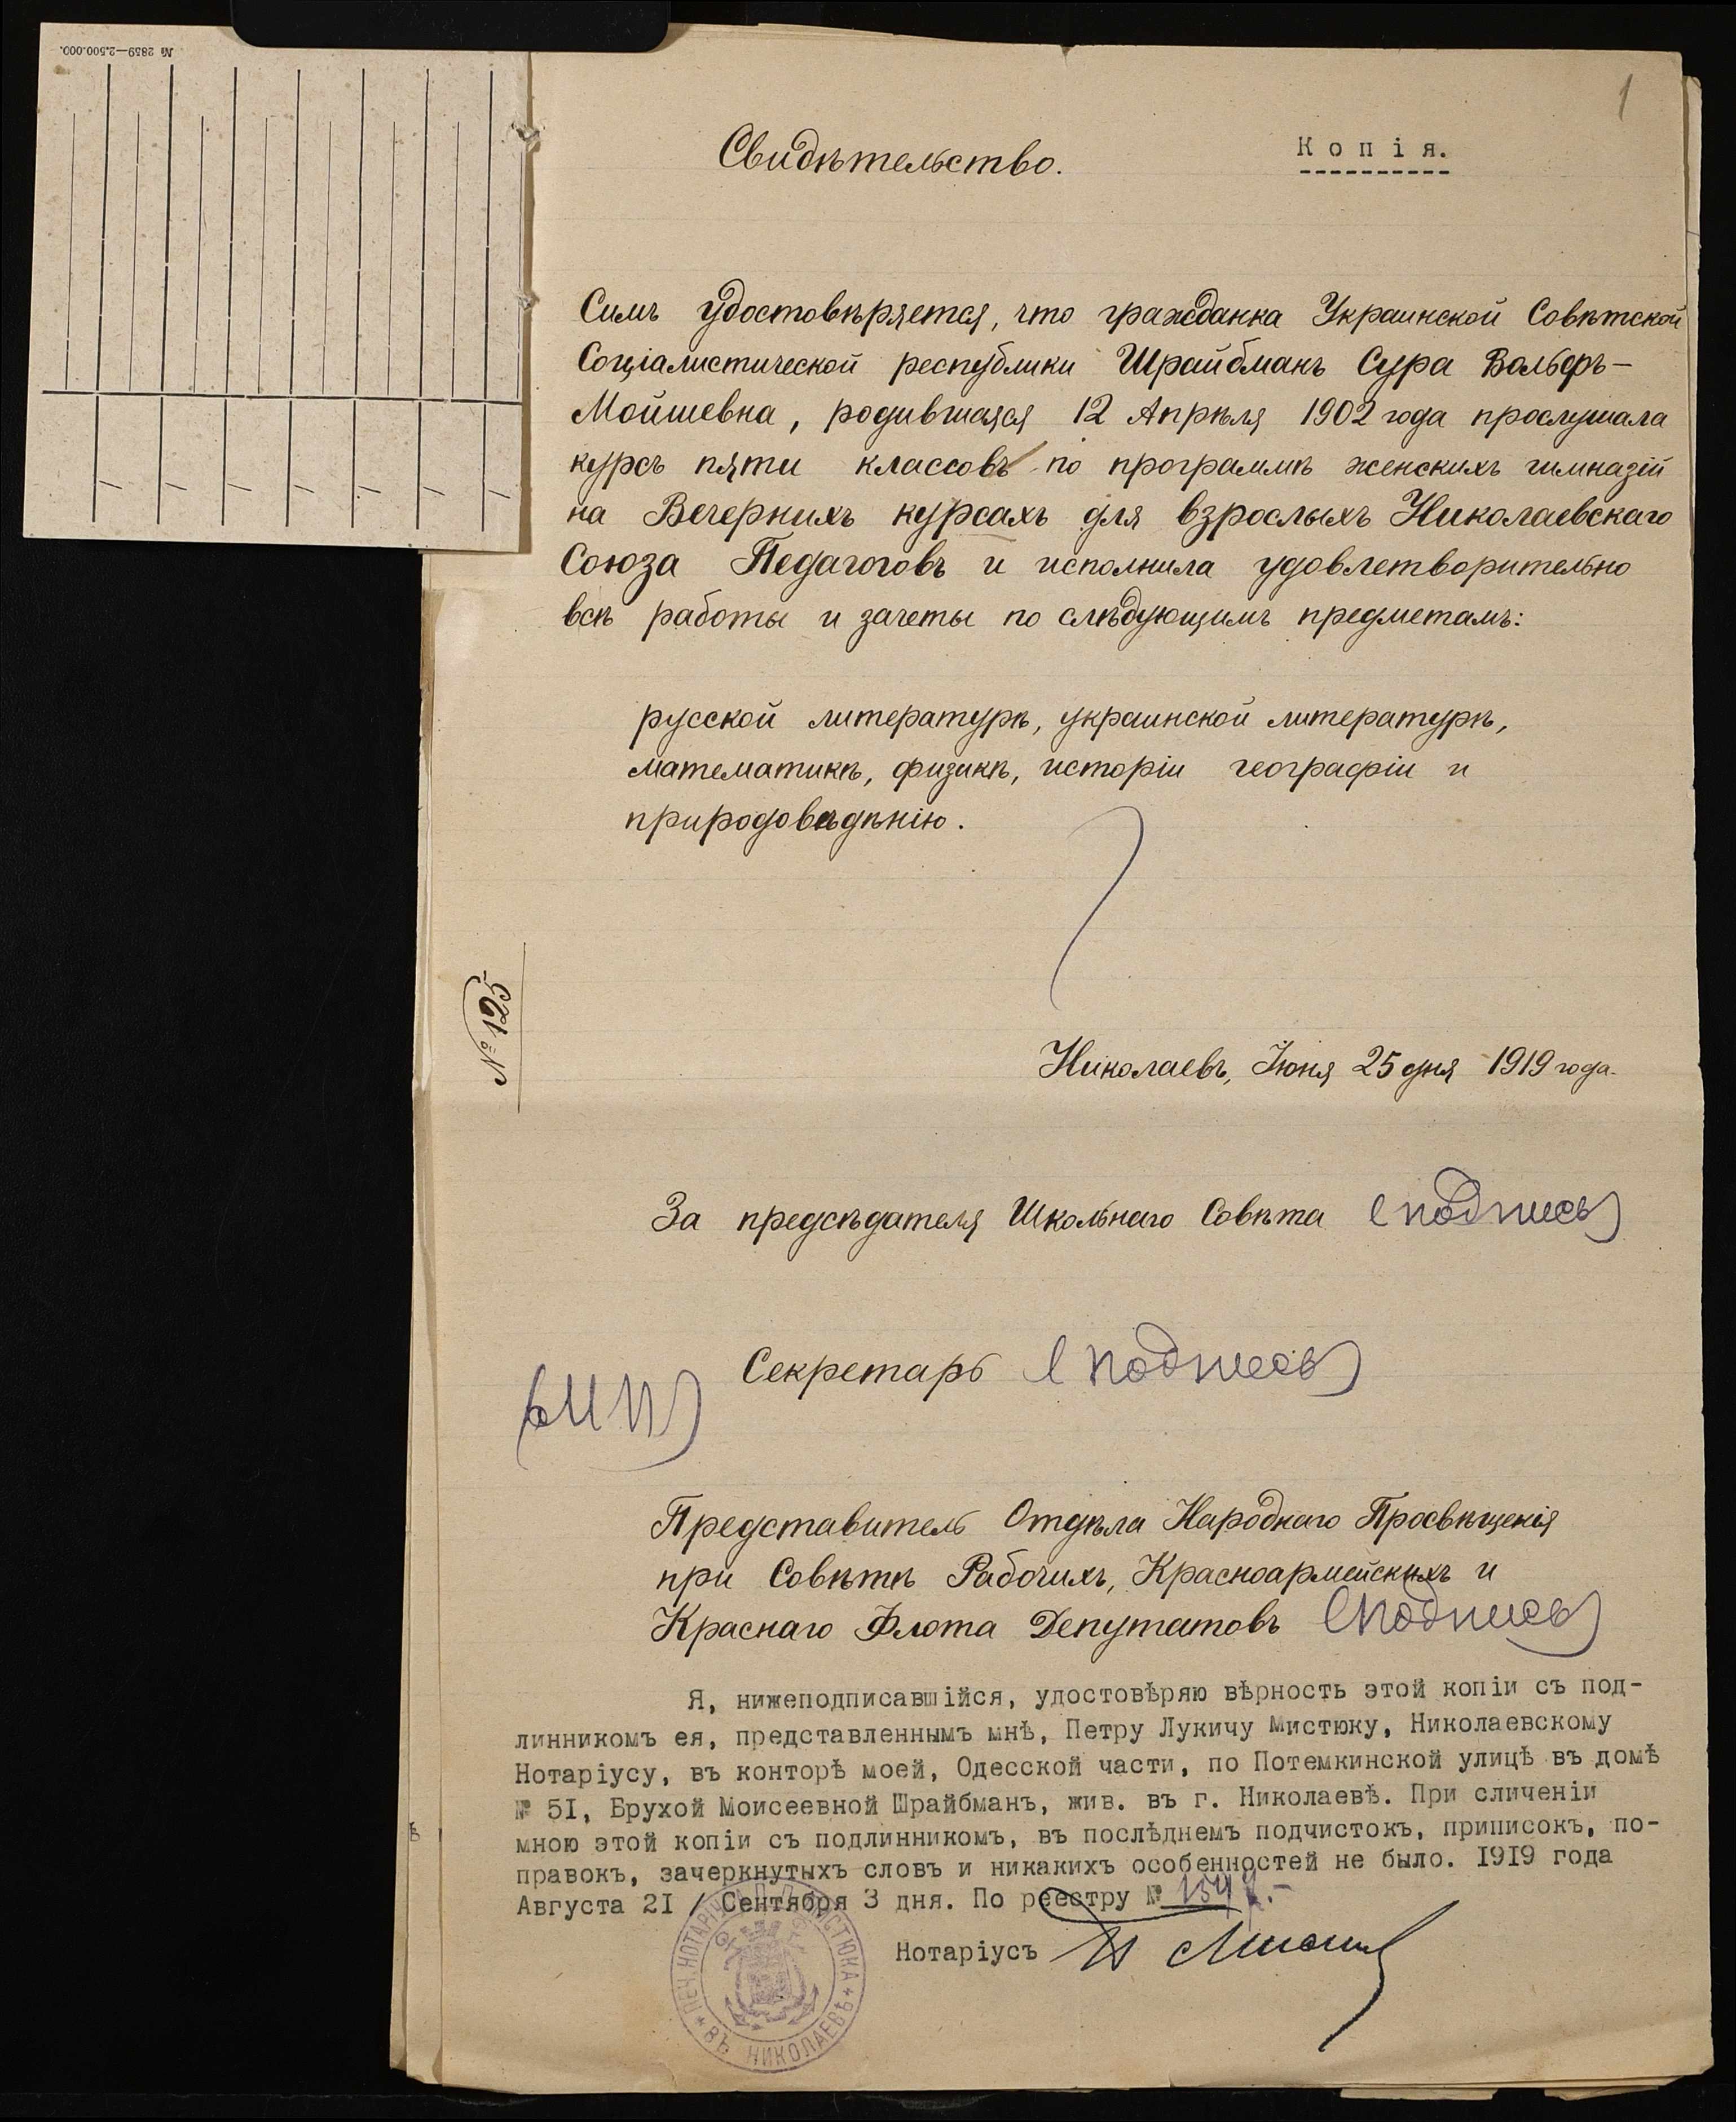 № 2859—2.500.000.
1
Свидѣтельство.
Копія.
Симъ удостовѣряется, что гражданка Украинской Совѣтской
Соціалистической республики Шрайбманъ Сура Вольфъ-
Мойшевна, родившаяся 12 Апрѣля 1902 года прослушала
курсъ пяти классовъ по программѣ женскихъ гимназій
на Вечернихъ курсахъ для взрослыхъ Николаевскаго
Союза Педагоговъ и исполнила удовлетворительно
всѣ работы и зачеты по слѣдующимъ предметамъ:
русской литературѣ, украинской литературѣ,
математикѣ, физикѣ, исторіи географіи и
природовѣдѣнію.
№ 125
Николаевъ, Іюня 25 дня 1919 года.
За предсѣдателя Школьнаго Совѣта (подпись)
Секретарь (подпись)
(МП)
Представитель Отдѣла Народнаго Просвѣщенія
при Совѣтѣ Рабочихъ, Красноармейскихъ и
Краснаго Флота Депутатовъ (подпись)
Я, нижеподписавшійся, удостовѣряю вѣрность этой копіи съ под-
линникомъ ея, представленнымъ мнѣ, Петру Лукичу Мистюку, Николаевскому
Нотаріусу, въ конторѣ моей, Одесской части, по Потемкинской улицѣ въ домѣ
№ 5I, Брухой Моисеевной Шрайбманъ, жив. въ г. Николаевѣ. При сличеніи
мною этой копіи съ подлинникомъ, въ послѣднемъ подчистокъ, приписокъ, по-
правокъ, зачеркнутыхъ словъ и никакихъ особенностей не было. I9I9 года
Августа 2I / Сентября 3 дня. По реестру №
Нотаріусъ П Мистюк
ПЕЧ. НОТАРІУСА П.Л. МИСТЮКА * ВЪ НИКОЛАЕВѢ *